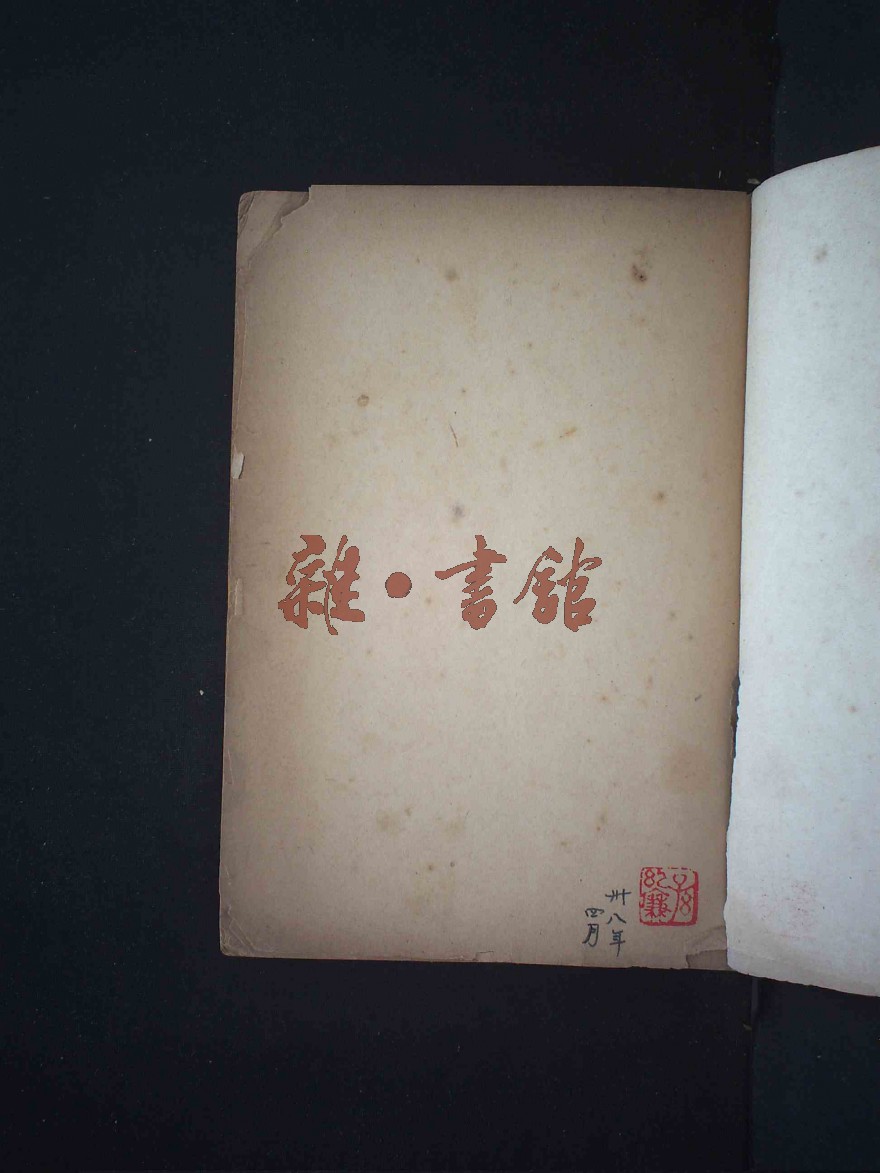 雜·書館
卅八年
四月